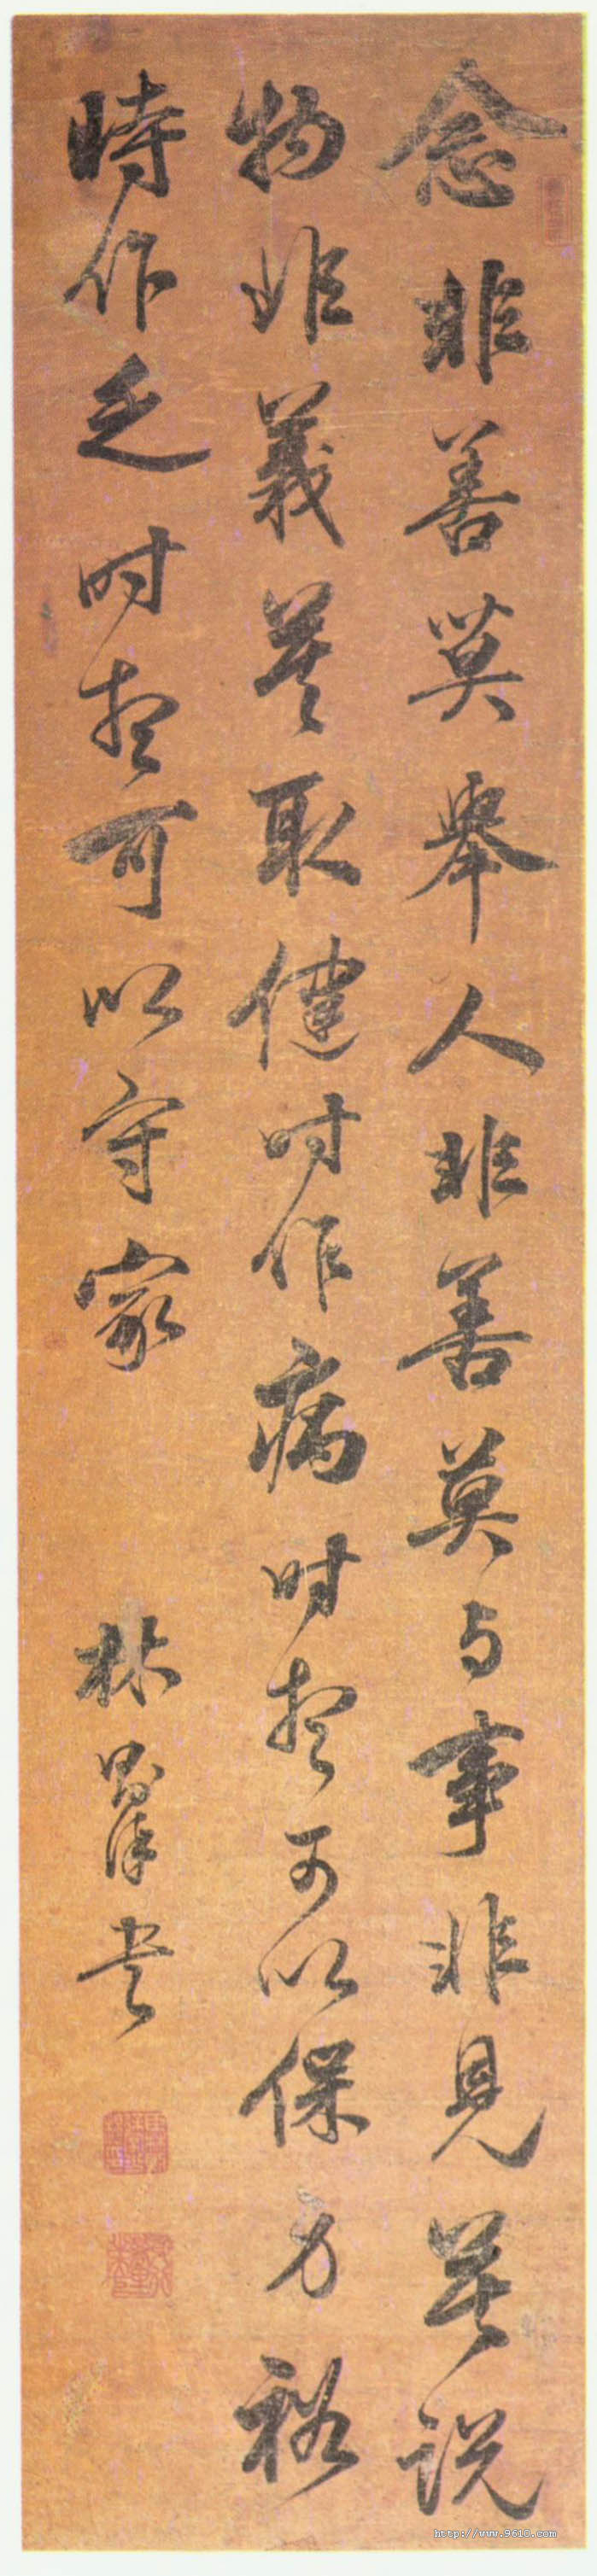 念非善莫舉人非善莫与事非見莫説
物非義莫取健时作病时想可以保身裕
時作乏时想可以守家
林佶書
http://www.9610.com